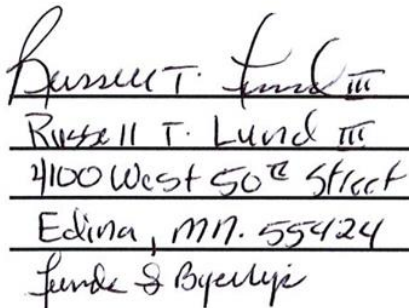 Russell T. Lund III
Russell T. Lund III
4100 West 50th Street
Edina, MN. 55424
Lunds & Byerly's